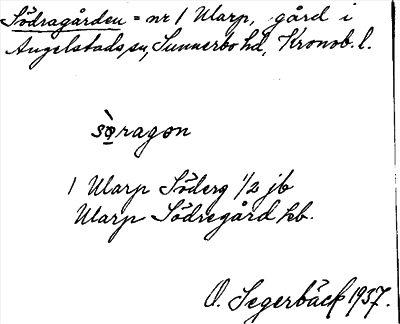 Södragården = nr 1 Ularp, gård i
Angelstads sn, Sunnerbo hd, Kronob. l.
sø̀ragɷn
1 Ularp Söderg 1/2 jb
Ularp Södregård kb.
O. Segerbäck 1937.